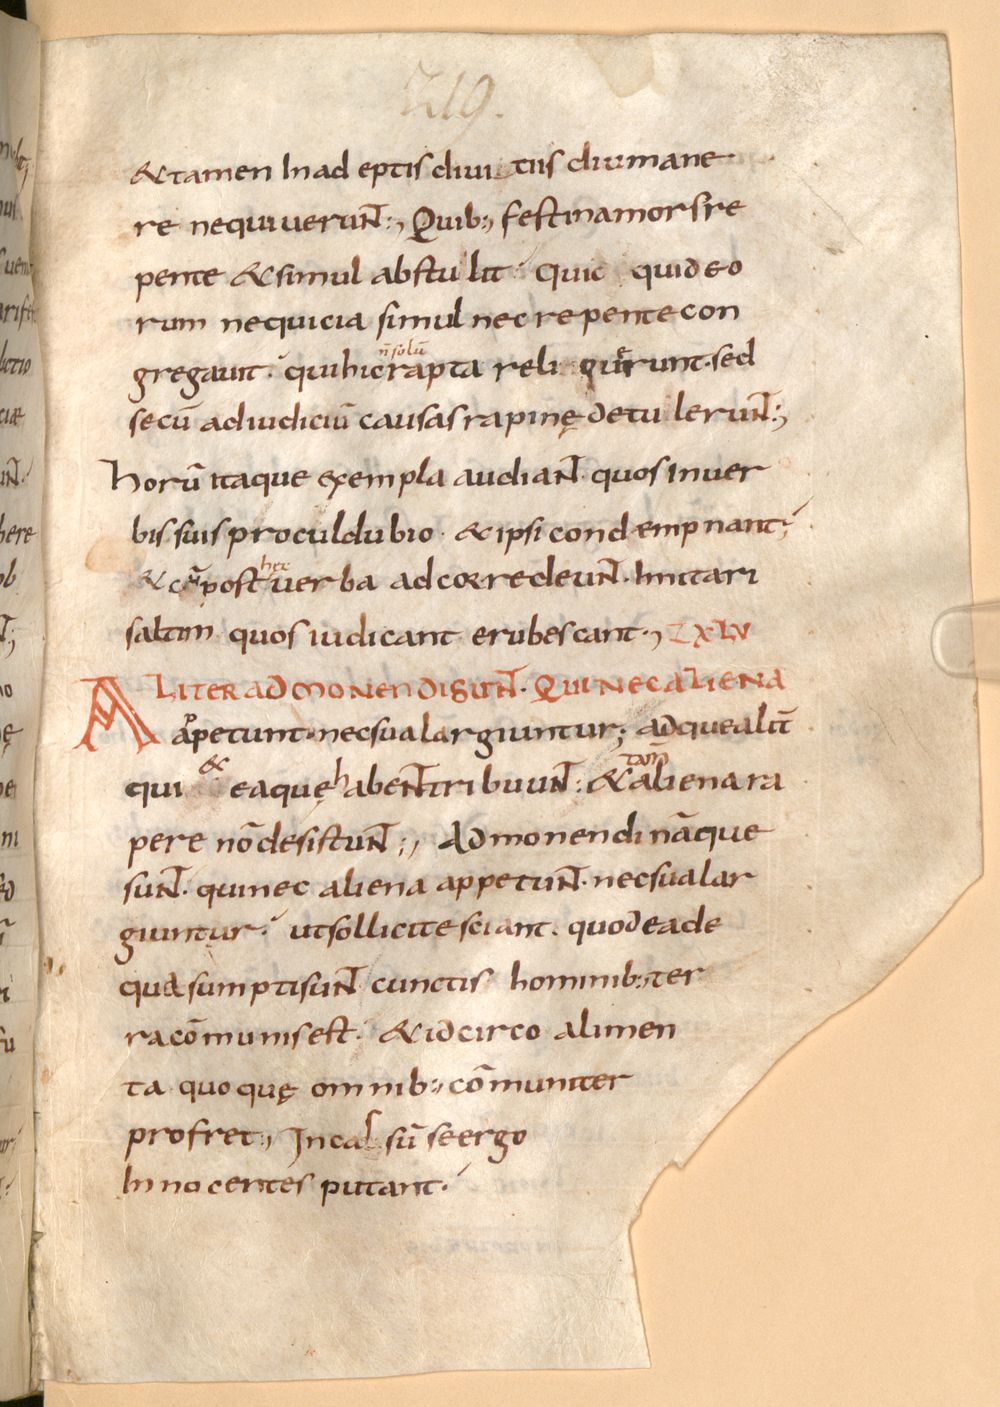 219.
&tamen In ad eptis divi tiis diu mane
re nequiverunt:, Quib:, festina mors re
pente &simul abstulit. Quic quid eo
rum nequicia simul nec repente con
gregavit. qui hic n̄ solū rapta reli querunt. sed
secū ad iudiciū causas rapinę detulerunt:,
horū itaque exempla audiant. quos in ver
bis suis proculdubio. &ipsi condempnant;
& cū post hec verba ad cor redeunt. Imitari
saltim quos iudicant erubescant., XLV
ALITER ADMONENDI SUNT. QUI NEC ALIENA
appetunt. nec sua largiuntur; adque aliī
qui & ea quę habent tribuunt: & tam̄ aliena ra
pere nō desistunt;, Admonendi nāque
sunt. qui nec aliena appetunt. nec sua lar
giuntur. ut sollicite sciant. quod ea de
qua sumpti sunt cunctis hominib:, ter
ra cōmunis est. &idcirco alimen
ta quoquę omnib:, cōmuniter
profret., Incas sū se ergo
Innocentes putant.